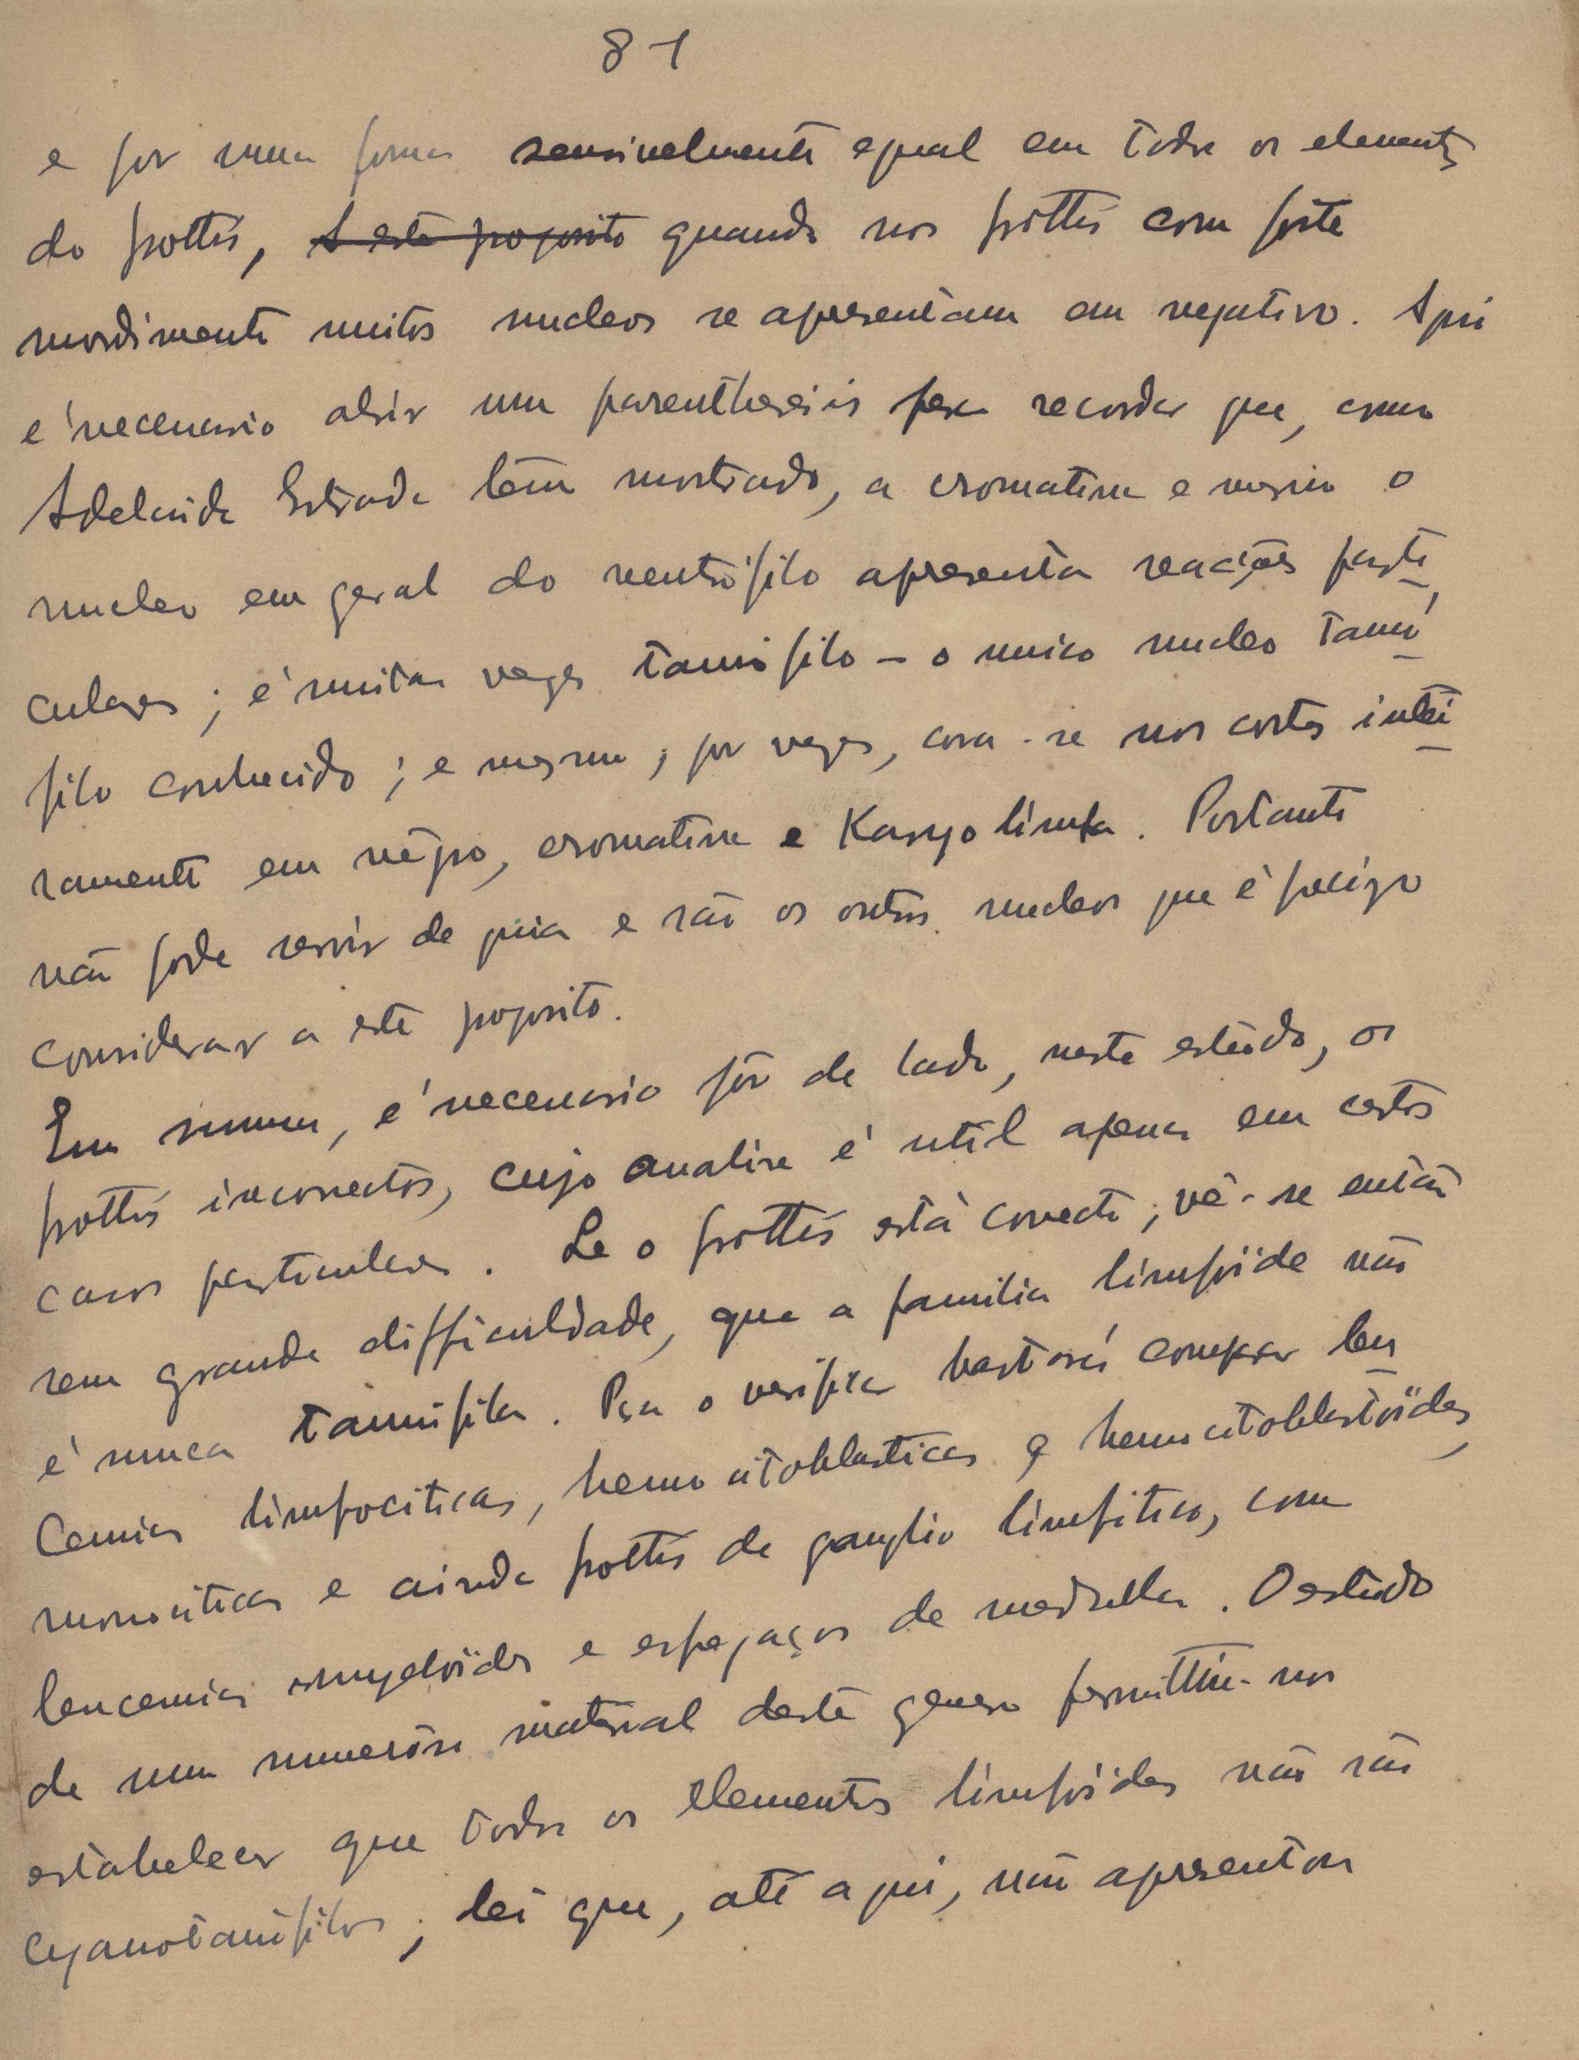 81
e por uma forma sensivelmente egual em todos os elementos
do frottis, A este proposito quando nos frottis com forte
mordimento muitos nucleos se apresentam em negativo. Aqui
e' necessario abrir um parenthesis para recordar que, como
Adelaide Estrada tem mostrado, a cromatina e mesmo o
nucleo em geral do neutrófilo apresenta reacções parti-
culares; é muitas vezes tanófilo – o unico nucleo tanó-
filo conhecido; e mesmo, por vezes, cora-se nos cortes intei-
ramente em négro, cromatina e Karyolimfa. Portanto
não pode servir de guia e são os outros nucleos que é preciso
considerar a este proposito.
Em summa, é necessario pôr de lado, neste estudo, os
frottis incorrectos, cujo analise é util apenas em certos
casos particulares. Se o frottis está correcto, vê-se então
sem grande difficuldade, que a familia limfóide não
é nunca tanófila. Para o verificar bastará comparar leu-
cemias limfociticas, hemocitoblasticas e hemocitoblastóides,
monociticas e ainda frottis de ganglio limfatico, com
leucemias myelóides e esfregaços de medulla. O estudo
de um numeroso material deste genero permittiu-nos
estabelecer que todos os elementos limfóides não são
cyanotanófilos, lei que, até aqui, não apresentou